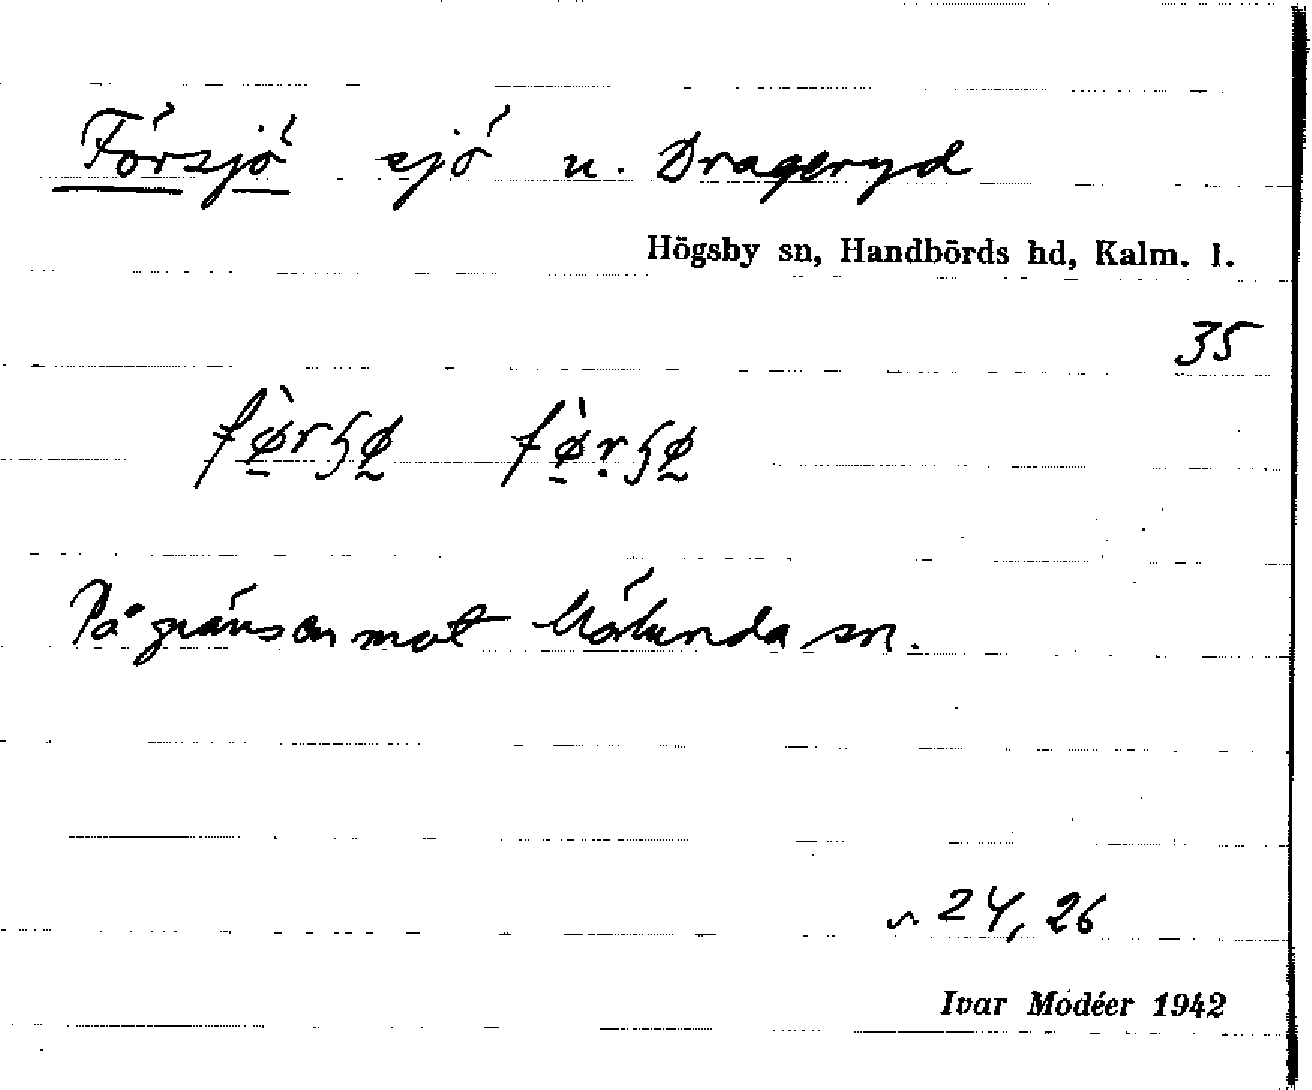 Försjö sjö u. Drageryd
Högsby sn, Handbörds hd, Kalm. l.
35
fø̠̀rɧø̰ fø̠̀ṛɧø̰
På gränsen mot Mörlunda sn.
24, 26
Ivar Modéer 1942